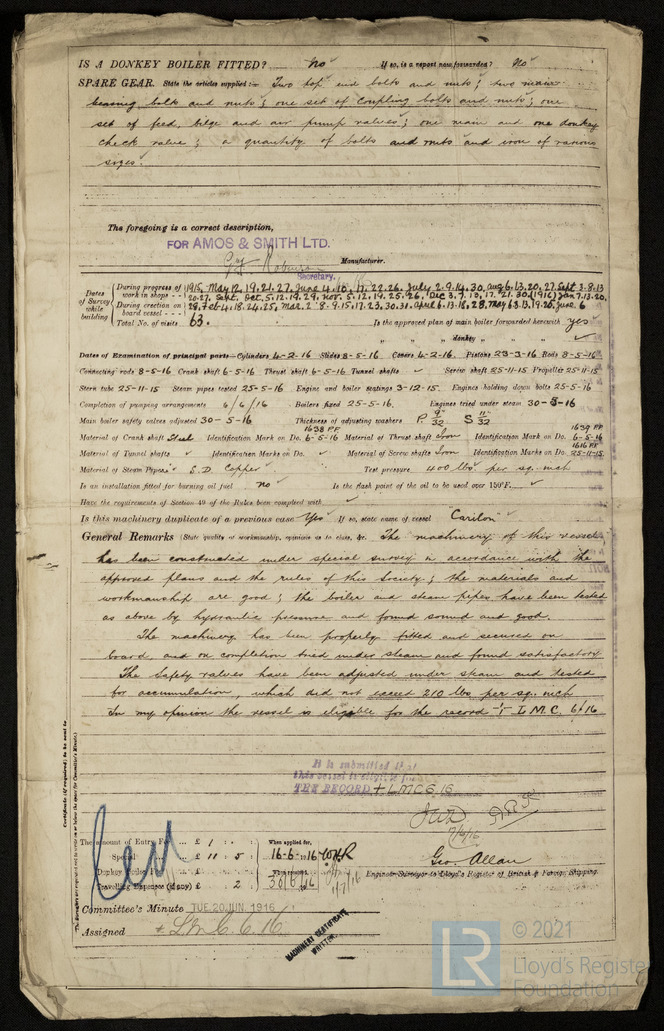 IS A DONKEY BOILER FITTED? No If so, is a report now forwarded? No
SPARE GEAR. State the articles supplied:— Two top end bolts and nuts; two main
bearing bolts and nuts; one set of coupling bolts and nuts; one
set of feed, bilge and air pump valves; one main and one donkey
check valve; a quantity of bolts and nuts and iron of various
sizes.
The foregoing is a correct description,
FOR AMOS & SMITH LTD.
Manufacturer.
Secretary.
Dates of Survey while building
During progress of work in shops - - 1915, May 12, 19, 21, 27, June 4, 10, 17, 22, 26, July 2, 9, 14, 30, Aug 6, 13, 20, 27, Sept 3, 8, 13
20, 27, Oct, 5, 12, 19, 29, Nov. 5, 12, 19, 25, 26, Dec 3, 7, 10, 17, 21, 30 (1916) Jan 7, 13, 20,
During erection on board vessel - - - 28, Feb 4, 18, 24, 25, Mar. 2, 8, 9, 15, 17, 23, 30, 31, April 6, 13, 18, 28, May 6, 8, 13, 19, 25, June 6
Total No. of visits 63. Is the approved plan of main boiler forwarded herewith yes
" " " donkey " " "
Dates of Examination of principal parts— Cylinders 4-2-16 Slides 8-5-16 Covers 4-2-16 Pistons 23-3-16 Rods 8-5-16
Connecting rods 8-5-16 Crank shaft 6-5-16 Thrust shaft 6-5-16 Tunnel shafts Screw shaft 25-11-15 Propeller 25-11-15
Stern tube 25-11-15 Steam pipes tested 25-5-16 Engine and boiler seatings 3-12-15. Engines holding down bolts 25-5-16
Completion of pumping arrangements 6/6/16 Boilers fixed 25-5-16. Engines tried under steam 30-5-16
Main boiler safety valves adjusted 30-5-16 Thickness of adjusting washers P. 9/32 S 11/32
Material of Crank shaft Steel Identification Mark on Do. 1638 PF 6-5-16 Material of Thrust shaft Iron Identification Mark on Do. 1639 PF 6-5-16
Material of Tunnel shafts Identification Marks on Do. Material of Screw shafts Iron Identification Marks on Do. 1616 PF 25-11-15.
Material of Steam Pipes S.D. Copper Test pressure 400 lbs per sq. inch
Is an installation fitted for burning oil fuel no Is the flash point of the oil to be used over 150°F.
Have the requirements of Section 49 of the Rules been complied with
Is this machinery duplicate of a previous case Yes If so, state name of vessel "Carilon"
General Remarks (State quality of workmanship, opinions as to class, &c. The machinery of this vessel
has been constructed under special survey in accordance with the
approved plans and the rules of this Society; the materials and
workmanship are good; the boiler and steam pipes have been tested
as above by hydraulic pressure and found sound and good.
The machinery has been properly fitted and secured on
board, and on completion tried under steam and found satisfactory
The Safety valves have been adjusted under steam and tested
for accumulation, which did not exceed 210 lbs per sq. inch
In my opinion the vessel is eligible for the record + L.M.C. 6/16
It is submitted that
this vessel is eligible for
THE RECORD + LMC 6.16
7/6/16
Certificate (if required) to be sent to
The amount of Entry Fee .. £ 1 : : When applied for,
Special .. £ 11 : 5 : 16-6-1916
Donkey Boiler Fee .. £ : : When received,
Travelling Expenses (if any) £ : 2 30/6/16
Geo. Allan
Engineer Surveyor to Lloyd's Register of British & Foreign Shipping.
Committee's Minute TUE. 20 JUN. 1916
Assigned + L.M.C. 6.16
MACHINERY CERTIFICATE
WRITTEN.
LR
© 2021
Lloyd's Register
Foundation